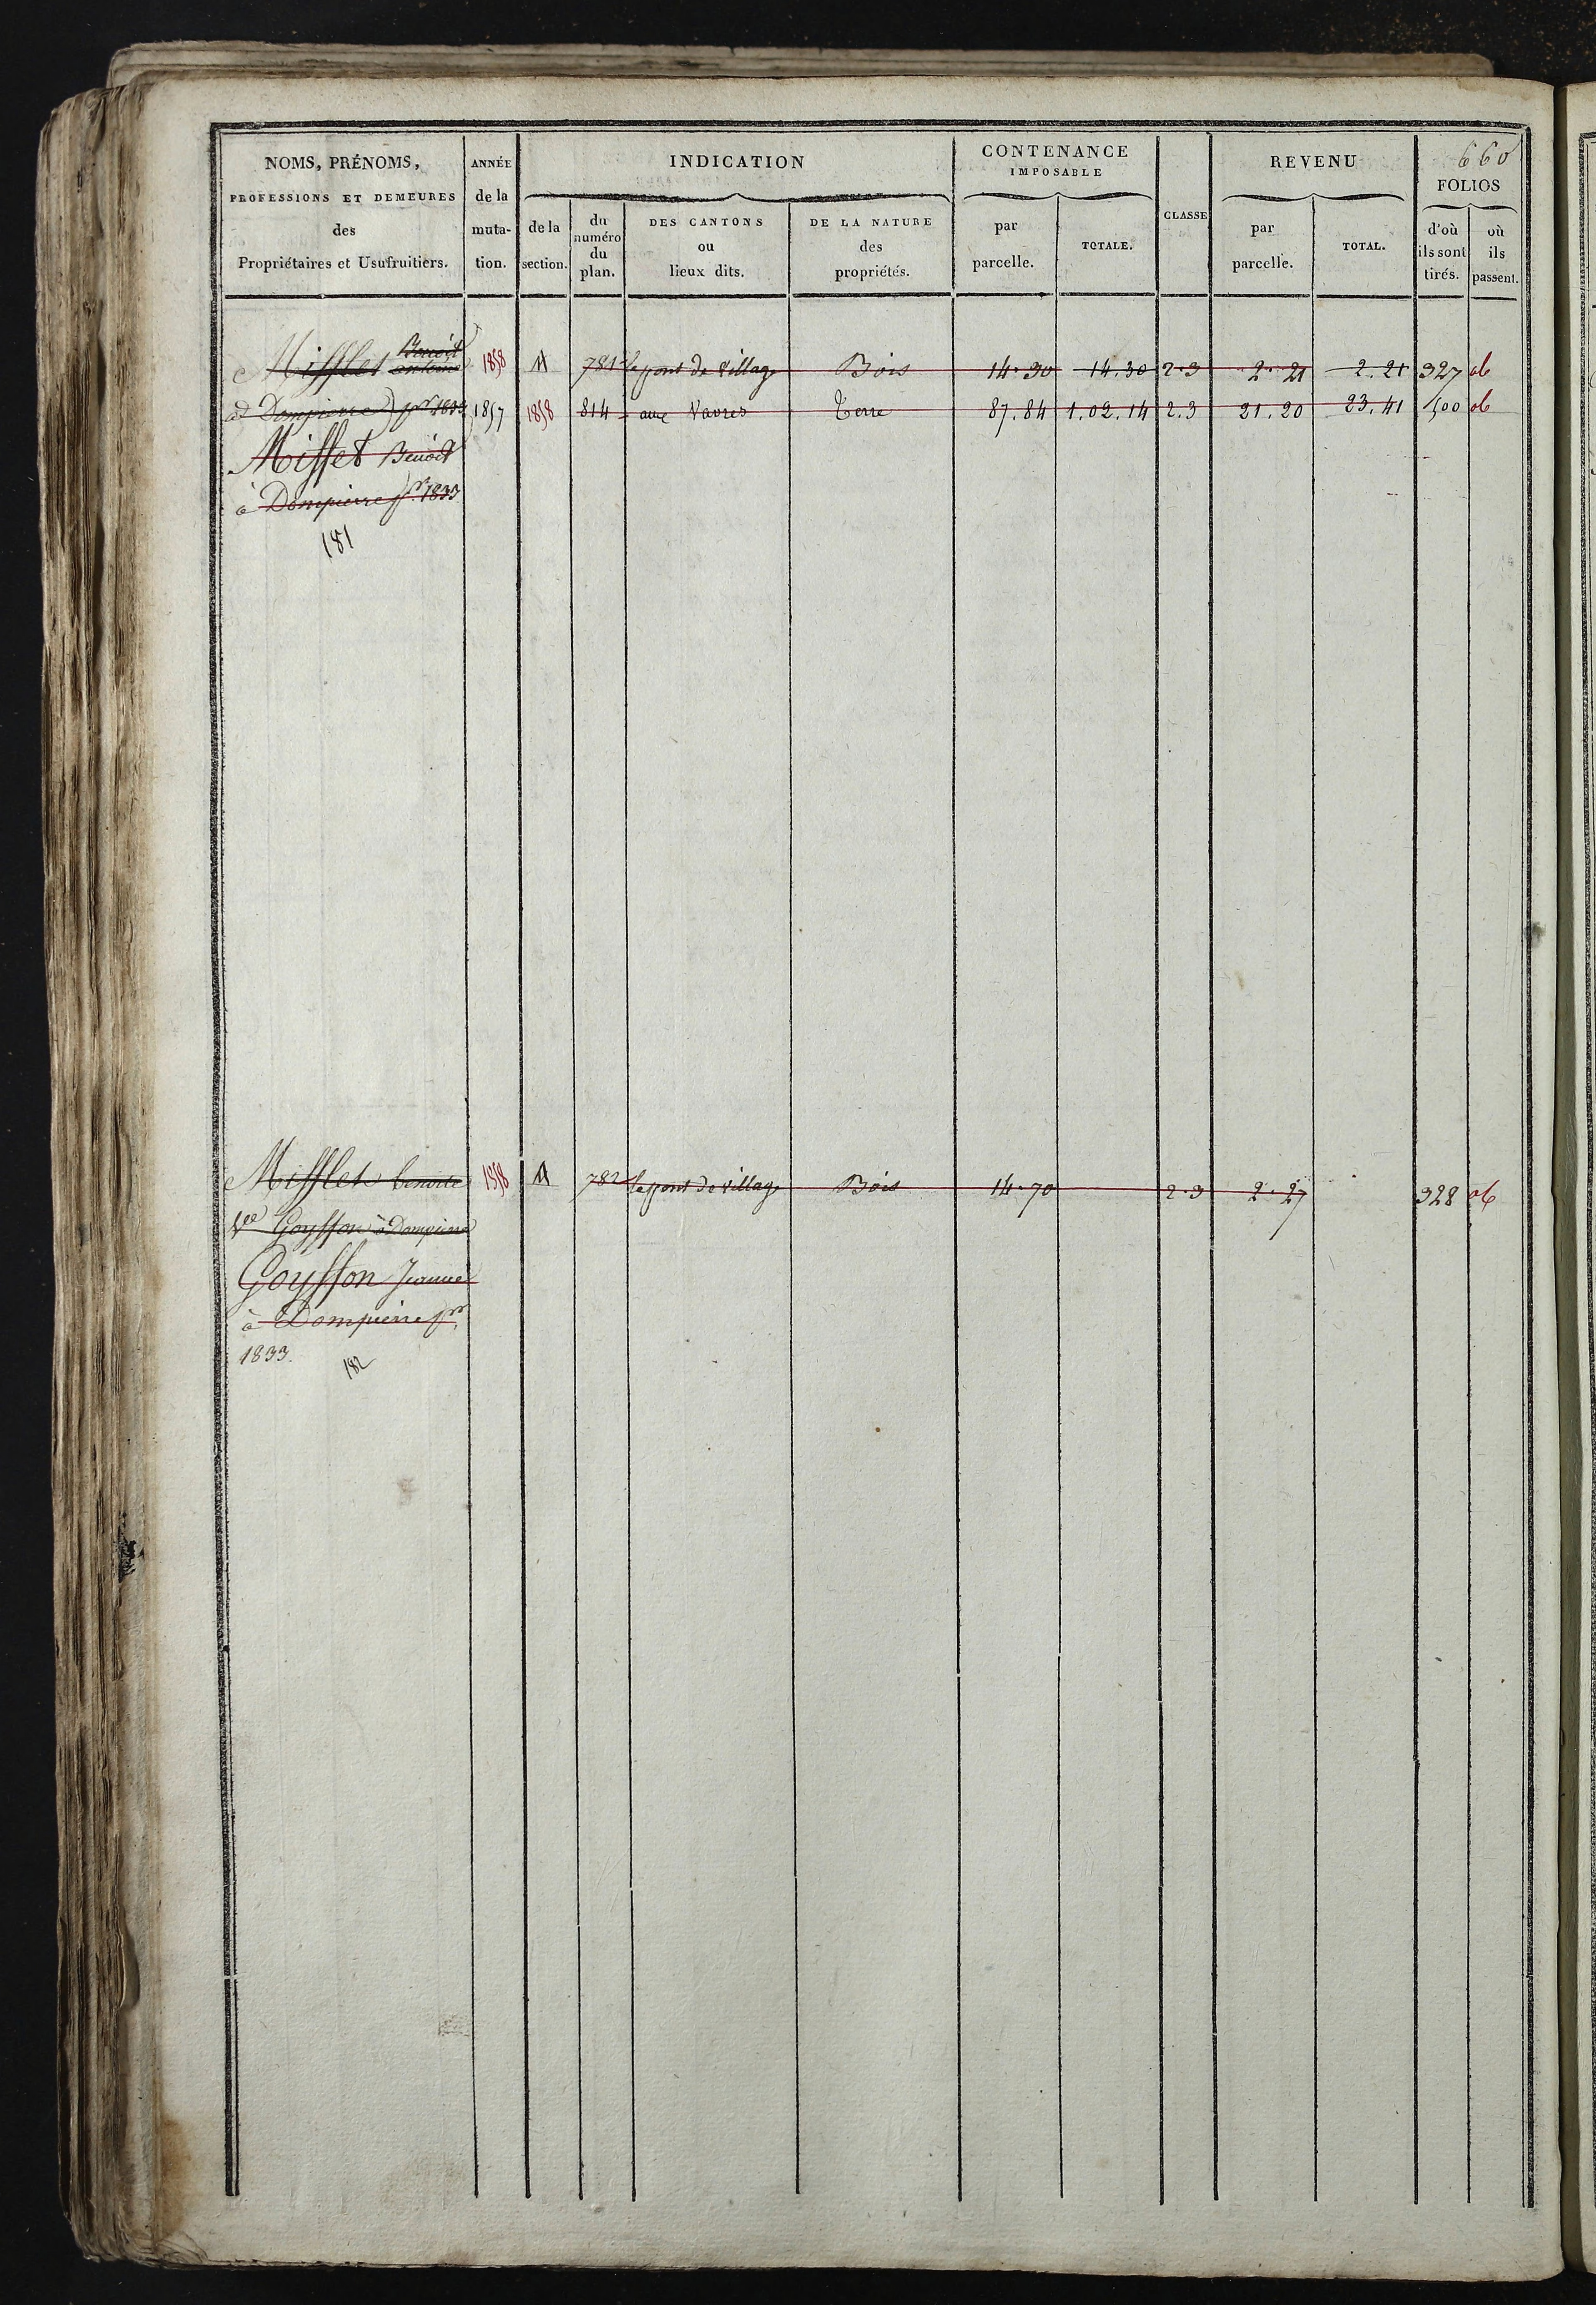 660
NOMS, PRÉNOMS, PROFESSIONS ET DEMEURES des Propriétaires et Usufruitiers.
ANNÉE de la muta- tion.
INDICATION
de la section.
du numéro du plan.
DES CANTONS ou lieux dits.
DE LA NATURE des propriétés.
CONTENANCE IMPOSABLE
par parcelle.
TOTALE.
CLASSE
REVENU
par parcelle.
TOTAL.
FOLIOS
d'où ils sont tirés.
où ils passent.
Benoit
Mifflet antoine 1858 781 le pont de village Bois 14.30 14.30 2.3 2.21 2.21 327
à Dompierre pr 1833 1857 1858 814 aux Vavres Terre 87.84 1.02.14 2.3 21.20 23.41 500
Misset Benoit
à Dompierre pr. 1833
181
Mifflet benoite 1858 782 le pont de village Bois 14.70 2.3 2.27 328
Ve Goyffon à Dompierre
Goyffon Jeanne
à Dompierre pr.
1833.
182